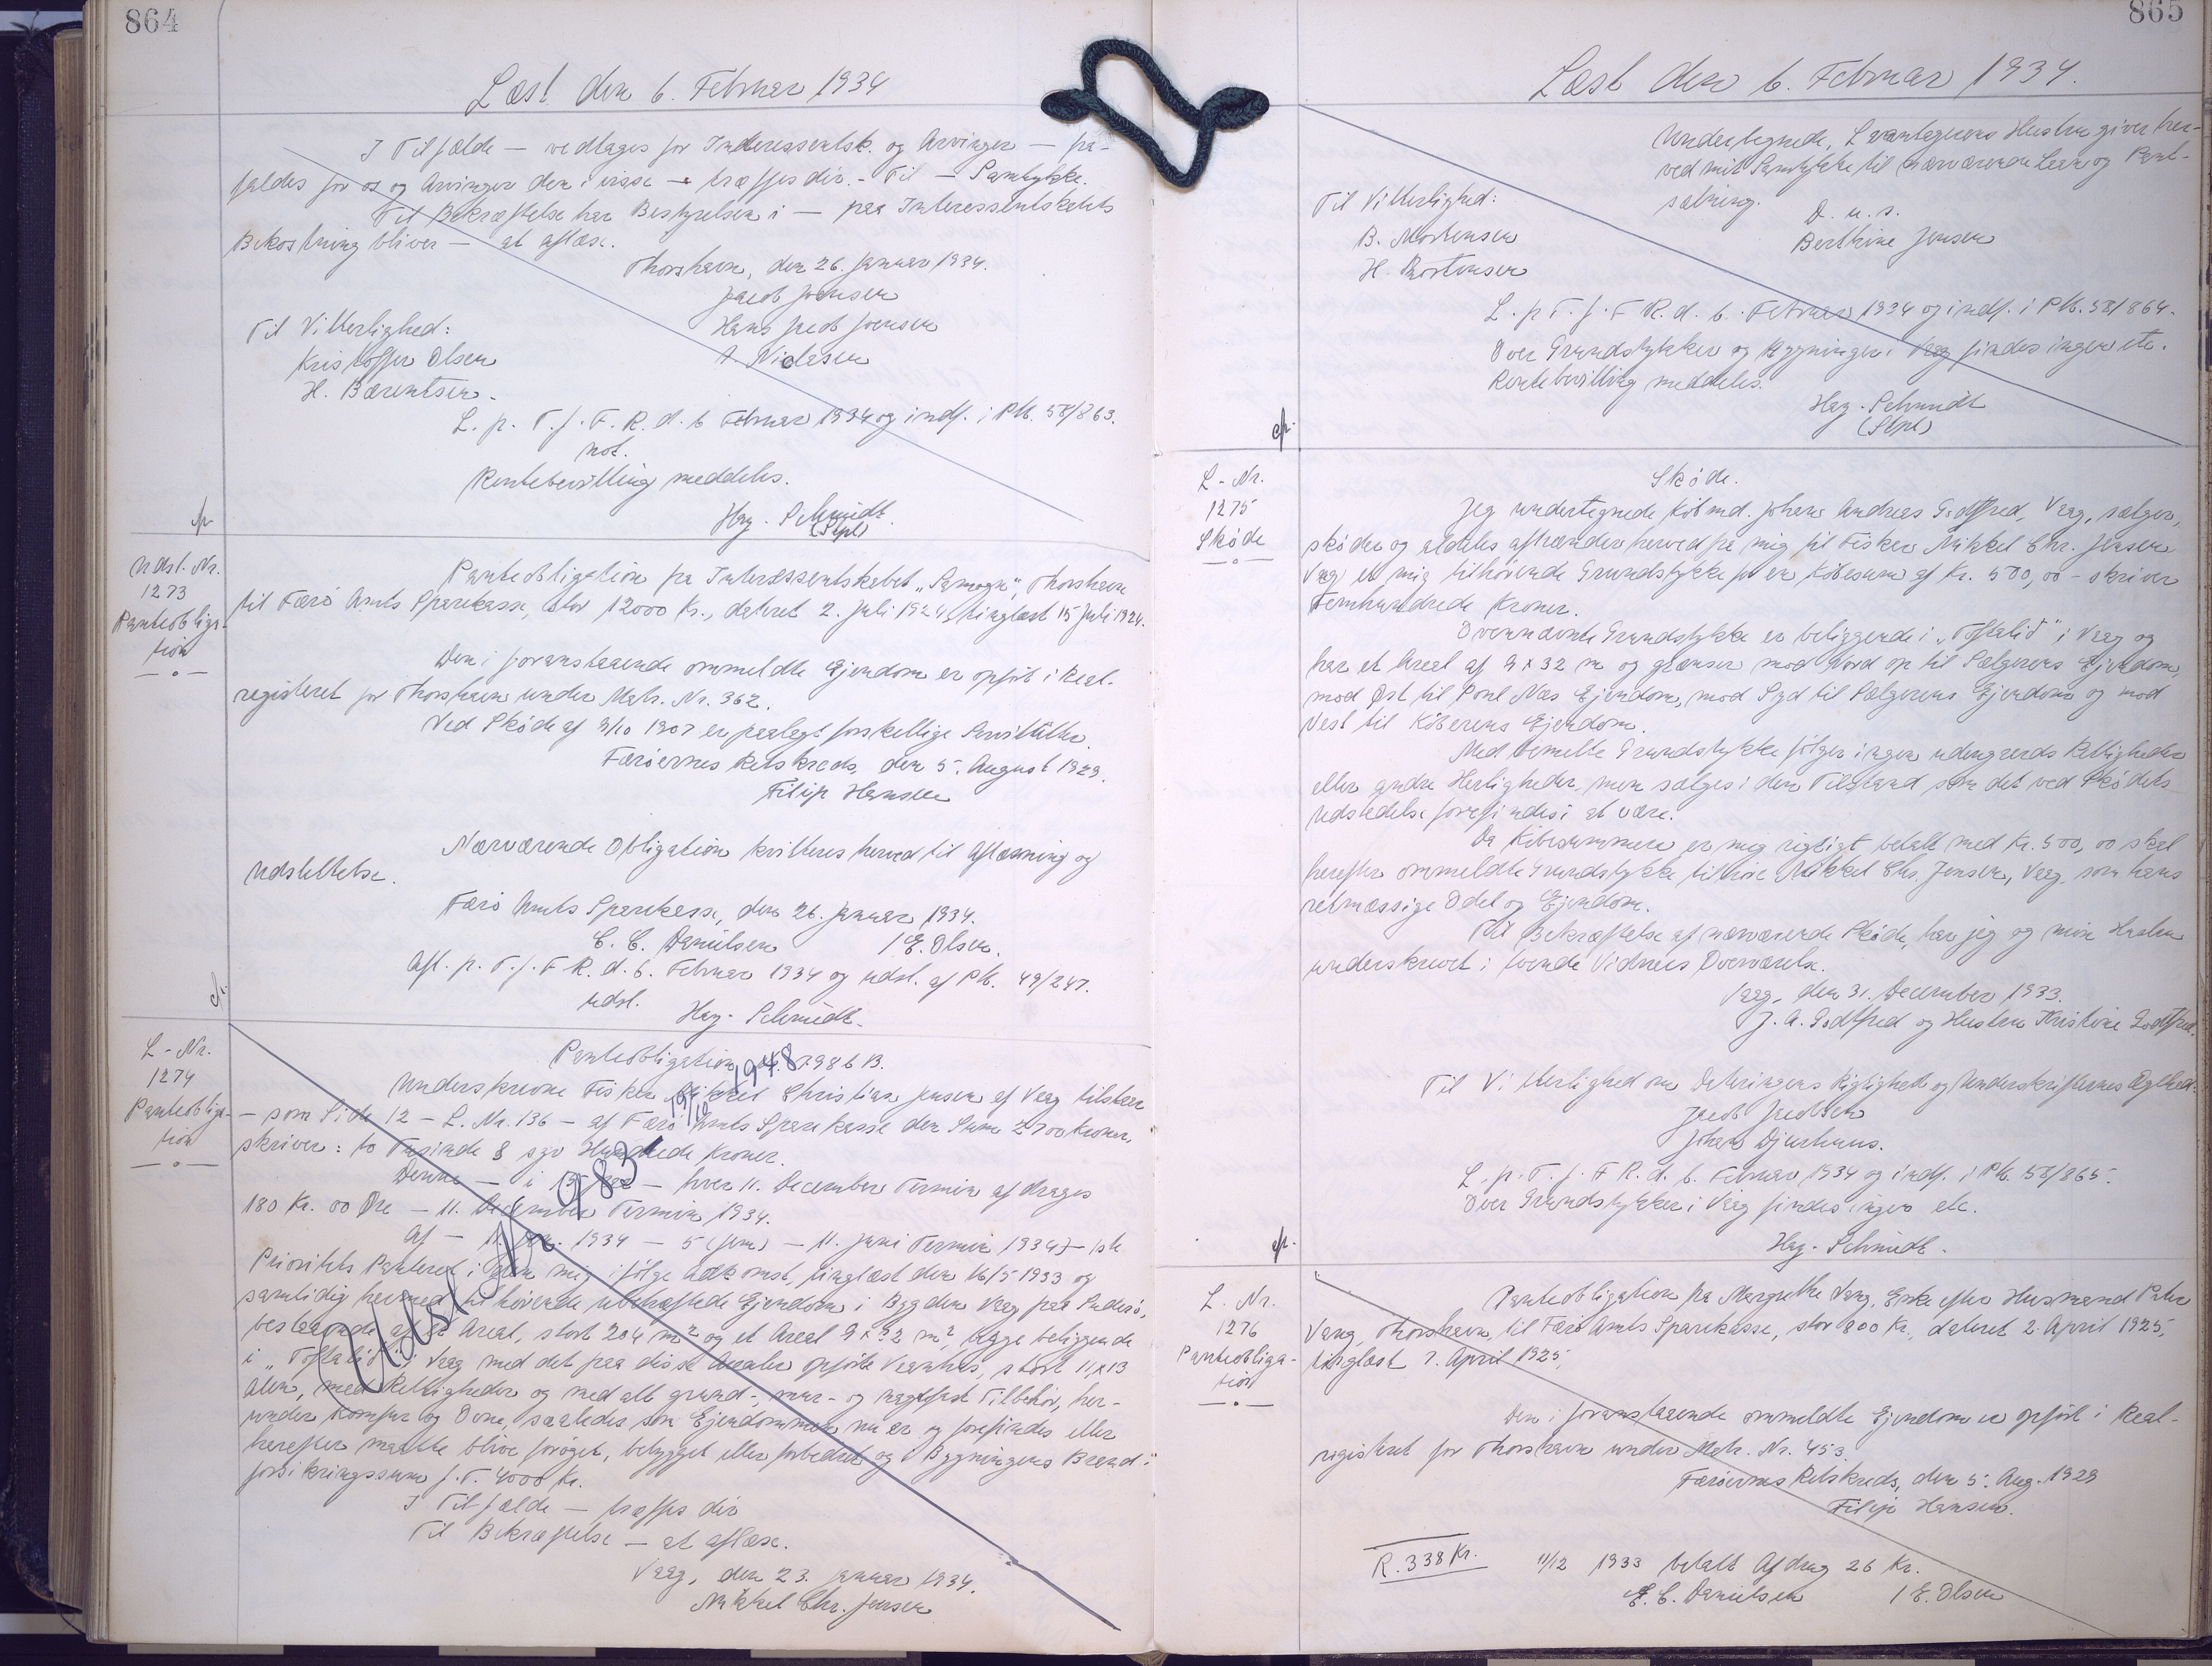 864
Læst den 6. Februar 1934
I Tilfælde — vedtages for Interessentsk. og Arvinger — fra-
faldes for os og Arvinger den i visse — træffes dir. - Til — Samtykke.
Til Bekræftelse har Bestyrelsen i — paa Interessentskabets
Bekostning bliver — at aflæse.
Thorshavn, den 26. Januar 1934.
Jacob Joensen
Til Vitterlighed:
Hans Jacob Joensen
Kristoffer Olsen
H. Bærentsen.
L. p. T. f. F. R. d. 6 Februar 1934 og indf. i Pb. 58/863.
not.
Rentebevilling meddeles.
Hag. Schmidt.
(Stpl)
Udsl. Nr.
1273
Panteobliga-
tion
Panteobligation fra Interessentskabet "Samogn", Thorshavn
til Færø Amts Sparekasse, stor 12000 Kr., dateret 2. Juli 1924, tinglæst 15 Juli 1924.
Den i foranstaaende ommeldte Ejendom er opført i Real-
registeret for Thorshavn under Matr. Nr. 362.
Ved Skøde af 9/10 1907 er paalagt forskellige Servitutter.
Færøernes Retskreds, den 5. August 1929.
Filip Hansen
Nærværende Obligation kvitteres herved til Aflæsning og
Udslettelse.
Færø Amts Sparekasse, den 26. Januar 1934.
C. C. Danielsen / E. Olsen.
Afl. p. T. f. F R. d. 6. Februar 1934 og udsl. af Pb. 49/247.
udsl.
Hag. Schmidt.
L - Nr.
1274
Panteobliga-
tion
Panteobligation 7986 B.
Underskrevne Fisker Mikkel Christian Jensen af Vaag tilstaar
— som Side 12 — L. Nr. 136 — af Færø Amts Sparekasse den Sum 2700 Kroner,
skriver: to Tusinde & syv Hundrede Kroner.
Denne — i 15 Aar — hver 11. December Termin afdrages
180 Kr. 00 Øre — 11. December Termin 1934.
Af — 11. 1934 — 5 (fem) — 11. Juni Termin 1934) — 1ste
Prioritets Panteret i den mig ifølge Adkomst, tinglæst den 16/5 1933 og
samtidig hermed tilhørende ubehæftede Ejendom i Bygden Vaag paa Suderø,
bestaaende af et Areal, stort 204 m² og et Areal 9 × 32 m², begge beliggende
i "Toftalid" i Vaag med det paa disse Arealer opførte Vaanhus, stort 11 × 13
Alen, med Rettigheder og med alt grund-, mur- og nagelfast Tilbehør, her-
under Komfur og Ovne, saaledes som Ejendommen nu er og forefindes eller
herefter maatte blive forøget, bebygget eller forbedret og Bygningens Brand-
forsikringssum f. T. 4000 Kr.
I Tilfælde — træffes dir
Til Bekræftelse — at aflæse.
Vaag, den 23. Januar 1934.
Mikkel Chr. Jensen
Udsl
1948
1983
865
Læst den 6. Februar 1934.
Undertegnede, Laantagerens Hustru giver her-
ved mit Samtykke til nærværende Laan og Pant-
sætning.
Til Vitterlighed:
D. u. s.
B. Mortensen
Berthine Jensen
H. Mortensen
L. p T. f. F R. d. 6. Februar 1934 og indf. i Pb. 58/864.
Over Grundstykker og Bygninger i Vaag findes ingen etc.
Rentebevilling meddeles.
Hag. Schmidt
(Stpl)
L - Nr.
1275
Skøde
Skøde.
Jeg undertegnede Købmd. Johan Andreas Godtfred, Vaag, sælger,
skøder og aldeles afhænder herved fra mig til Fisker Mikkel Chr. Jensen
Vaag et mig tilhørende Grundstykke for en Købesum af Kr. 500,00 - skriver
Femhundrede Kroner.
Overnævnte Grundstykke er beliggende i "Toftalid" i Vaag og
har et Areal af 9 × 32 m og grænser mod Nord op til Sælgerens Ejendom,
mod Øst til Poul Næs Ejendom, mod Syd til Sælgerens Ejendom og mod
Vest til Køberens Ejendom.
Med bemeldte Grundstykke følger ingen udengærds Rettigheder
eller andre Herligheder, men sælges i den Tilstand som det ved Skødets
Udstedelse forefindes i at være.
Da Købesummen er mig rigtigt betalt med Kr. 500,00 skal
herefter ommeldte Grundstykke tilhøre Mikkel Chr. Jensen, Vaag, som hans
retmæssige Odel og Ejendom.
Til Bekræftelse af nærværende Skøde, har jeg og min Hustru
underskrevet i tvende Vidners Overværelse.
Vaag, den 31. December 1933.
J. A. Godtfred og Hustru Kristine Godtfred.
Til Vitterlighed om Dateringens Rigtighed og Underskrifternes Ægthed.
Jacob Jacobsen
Johan Djurhuus.
L. p. T. f. F R. d. 6. Februar 1934 og indf. i Pb. 58/865.
Over Grundstykker i Vaag findes ingen etc.
Hag. Schmidt.
L. Nr.
1276
Panteobliga-
tion
Panteobligation fra Margrethe Vang, Enke efter Husmand Peter
Vang, Thorshavn, til Færø Amts Sparekasse, stor 800 Kr., dateret 2. April 1925,
tinglæst 7. April 1925,
Den i foranstaaende ommeldte Ejendom er opført i Real-
registeret for Thorshavn under Matr. Nr. 453.
Færøernes Retskreds, den 5. Aug. 1929
Filip Hansen.
R. 338 Kr. 11/12 1933 betalt Afdrag 26 Kr.
C. C. Danielsen / E. Olsen